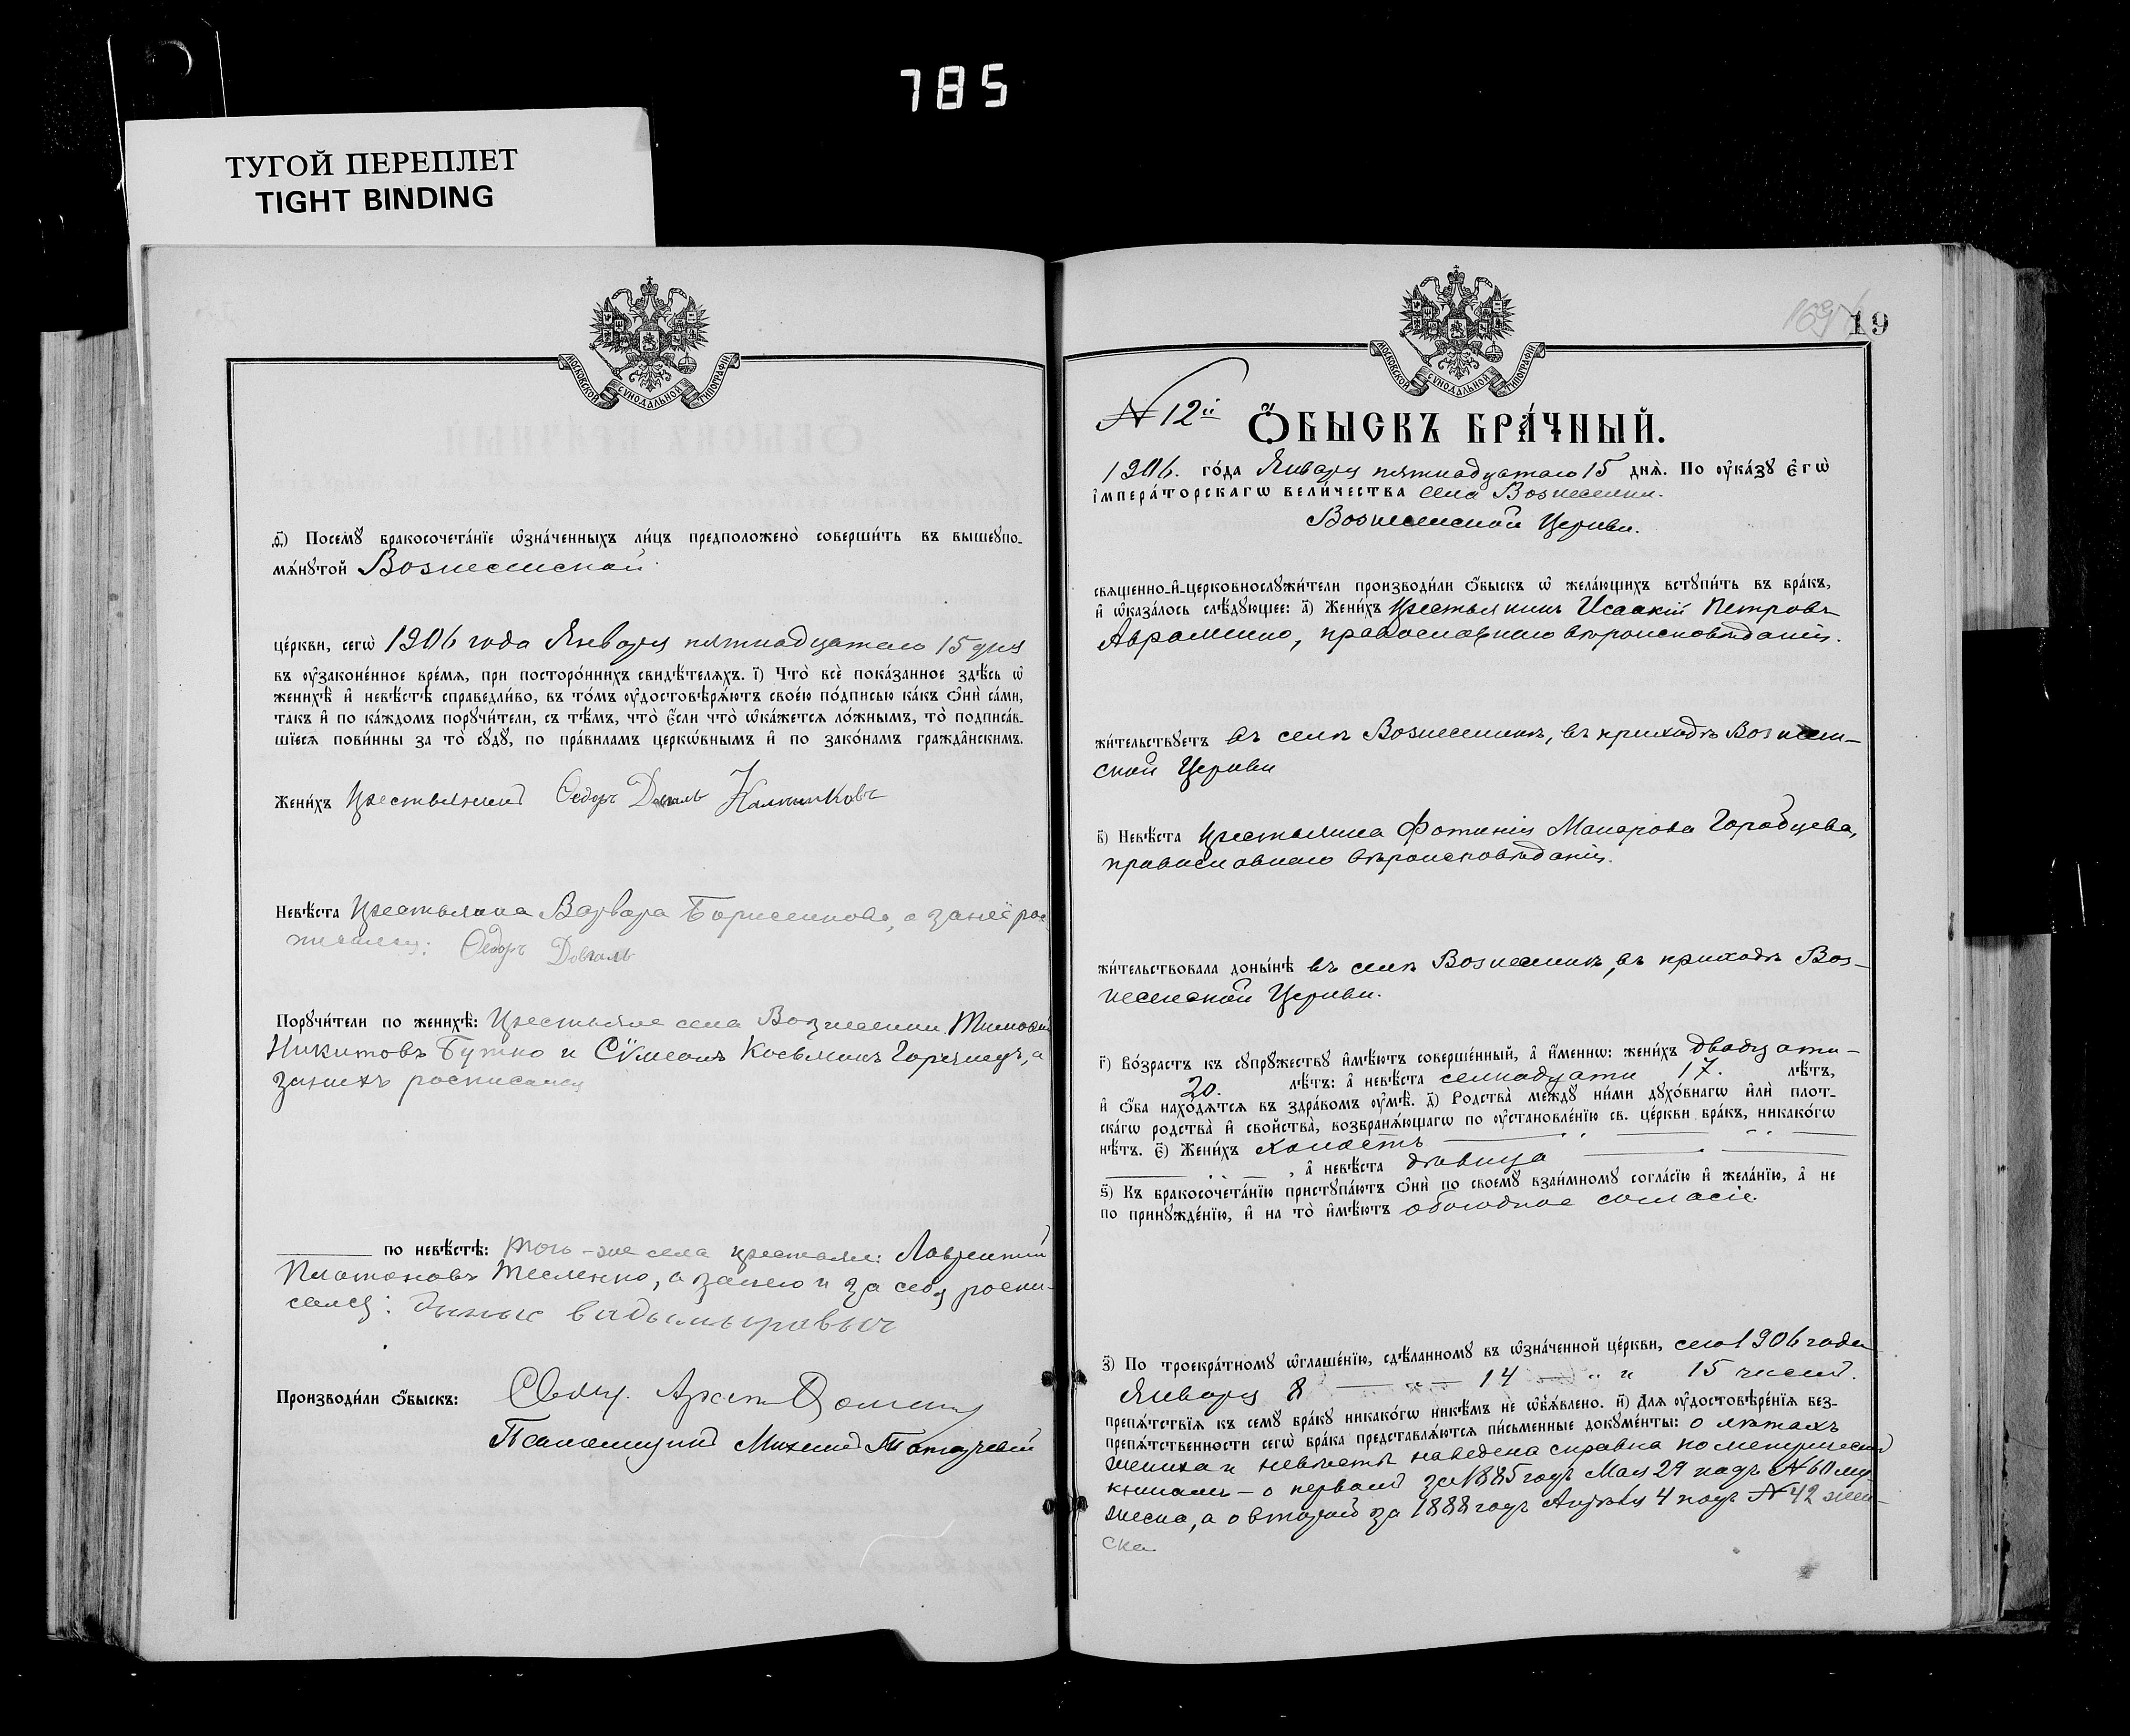 785
ТУГОЙ ПЕРЕПЛЕТ
TIGHT BINDING
МОСКОВСКОЙ СѴНОДАЛЬНОЙ ТИПОГРАФІИ
Посемꙋ бракосочета́нїе ѡ҆зна́ченныхъ ли́цъ предположено̀ соверши́ть въ вышеꙋпо-
мѧ́нꙋтой Вознесенской
це́ркви, сегѡ̀ 1906 года Января пятнадцатаго 15 дня
въ ᲂу҆законе́нное вре́мѧ, при посторо́ннихъ свидѣ́телѧхъ. і҃) Что̀ всѐ пока́занное здѣ́сь ѡ҆
женихѣ̀ и҆ невѣ́стѣ справедли́во, въ то́мъ ᲂу҆достовѣрѧ́ютъ свое́ю по́дписью ка́къ ѻ҆нѝ са́ми,
та́къ и҆ по ка́ждомъ порꙋчи́тели, съ тѣ́мъ, что̀ є҆́сли что̀ ѡ҆ка́жетсѧ ло́жнымъ, то̀ подписа́в-
шїесѧ пови́нны за то̀ сꙋдꙋ̀, по пра́виламъ церкѡ́внымъ и҆ по зако́намъ гражда̑нскимъ.
Жени́хъ крестьянинъ Ѳедоръ Калниковъ
Невѣ́ста крестьянка Варвара Борисенкова, а за неё рос
писался: Ѳедоръ Довгаль
Порꙋчи́тели по женихѣ̀: крестьяне села Вознесенки Тимофей
Никитовъ Бутко и Сѵмеонъ Косьминъ, а
за нихъ росписался
по невѣ́стѣ: того-же села крестьяне: Лаврентий
Платоновъ Тесленко, а за него и за себя роспи-
сался:
Производи́ли ѻ҆́быскъ: Свящ.
Псаломщикъ Михаилъ
19
МОСКОВСКОЙ СѴНОДАЛЬНОЙ ТИПОГРАФІИ
N 12й
Ѻ҆́БЫСКЪ БРА́ЧНЫЙ.
1906. го́да Января пятнадцатаго 15 днѧ̀. По ᲂу҆ка́зꙋ є҆гѡ̀
і҆мпера́торскагѡ вели́чества села Вознесенки.
Вознесенской Церкви.
свѧщенно-и҆-церковнослꙋжи́тели производи́ли ѻ҆́быскъ ѡ҆ жела́ющихъ встꙋпи́ть въ бра́къ,
и҆ ѡ҆каза́лось слѣ́дꙋющее: а҃) Жени́хъ крестьянинъ Исаакій Петровъ
Авраменко, православнаго вѣроисповѣданія.
жи́тельствꙋетъ въ селѣ Вознесенкѣ, въ приходѣ Вознесен-
ской Церкви
в҃) Невѣ́ста крестьянка Фотинія Макарова Горобцева,
православнаго вѣроисповѣданія.
жи́тельствовала доны́нѣ въ селѣ Вознесенкѣ, въ приходѣ Воз-
несенской Церкви.
г҃) Во́зрастъ къ сꙋпрꙋ́жествꙋ и҆мѣ́ютъ соверше́нный, а҆ и҆́меннѡ: жени́хъ двадцати-
20. лѣ́тъ: а҆ невѣ́ста семнадцати 17. лѣ́тъ,
и҆ ѻ҆́ба нахо́дѧтсѧ въ здра́вомъ ᲂу҆мѣ̀. д҃) Родства̀ междꙋ̀ ни́ми дꙋхо́внагѡ и҆лѝ плот-
ска́гѡ родства̀ и҆ свойства̀, возбранѧ́ющагѡ по ᲂу҆становле́нїю св. це́ркви бра́къ, никако́гѡ
нѣ́тъ. є҃) Жени́хъ холостъ
, а҆ невѣ́ста дѣвица
ѕ҃) Къ бракосочета́нїю пристꙋпа́ютъ ѻ҆нѝ по своемꙋ̀ взаи́мномꙋ согла́сїю и҆ жела́нїю, а҆ не
по принꙋжде́нїю, и҆ на то̀ и҆мѣ́ютъ обоюдное согласіе.
з҃) По троекра́тномꙋ ѡ҆глаше́нїю, сдѣ́ланномꙋ въ ѡ҆зна́ченной це́ркви, сего 1906 года
Января 8 14 и 15 чиселъ.
препѧ́тствїѧ къ семꙋ̀ бра́кꙋ никако́гѡ никѣ́мъ не ѡ҆б̾ѧ́влено. и҃) Длѧ ᲂу҆достовѣре́нїѧ без-
препѧ́тственности сегѡ̀ бра́ка представлѧ́ютсѧ пи́сьменные докꙋме́нты: о лѣтахъ
жениха и невѣсты наведена справка по метрическимъ
книгамъ – о первомъ за 1885 годъ Мая 29 подъ N 60 му-
жеска, а о второй за 1888 годъ Апрѣля 4 подъ N 42 жен-
ска